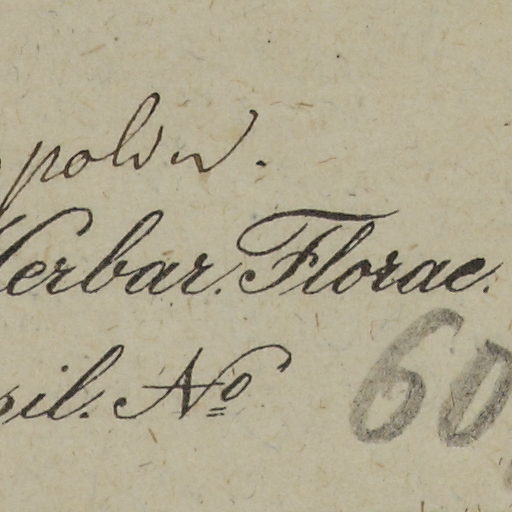 polin.
Herbar. Florae.
sil. No 60